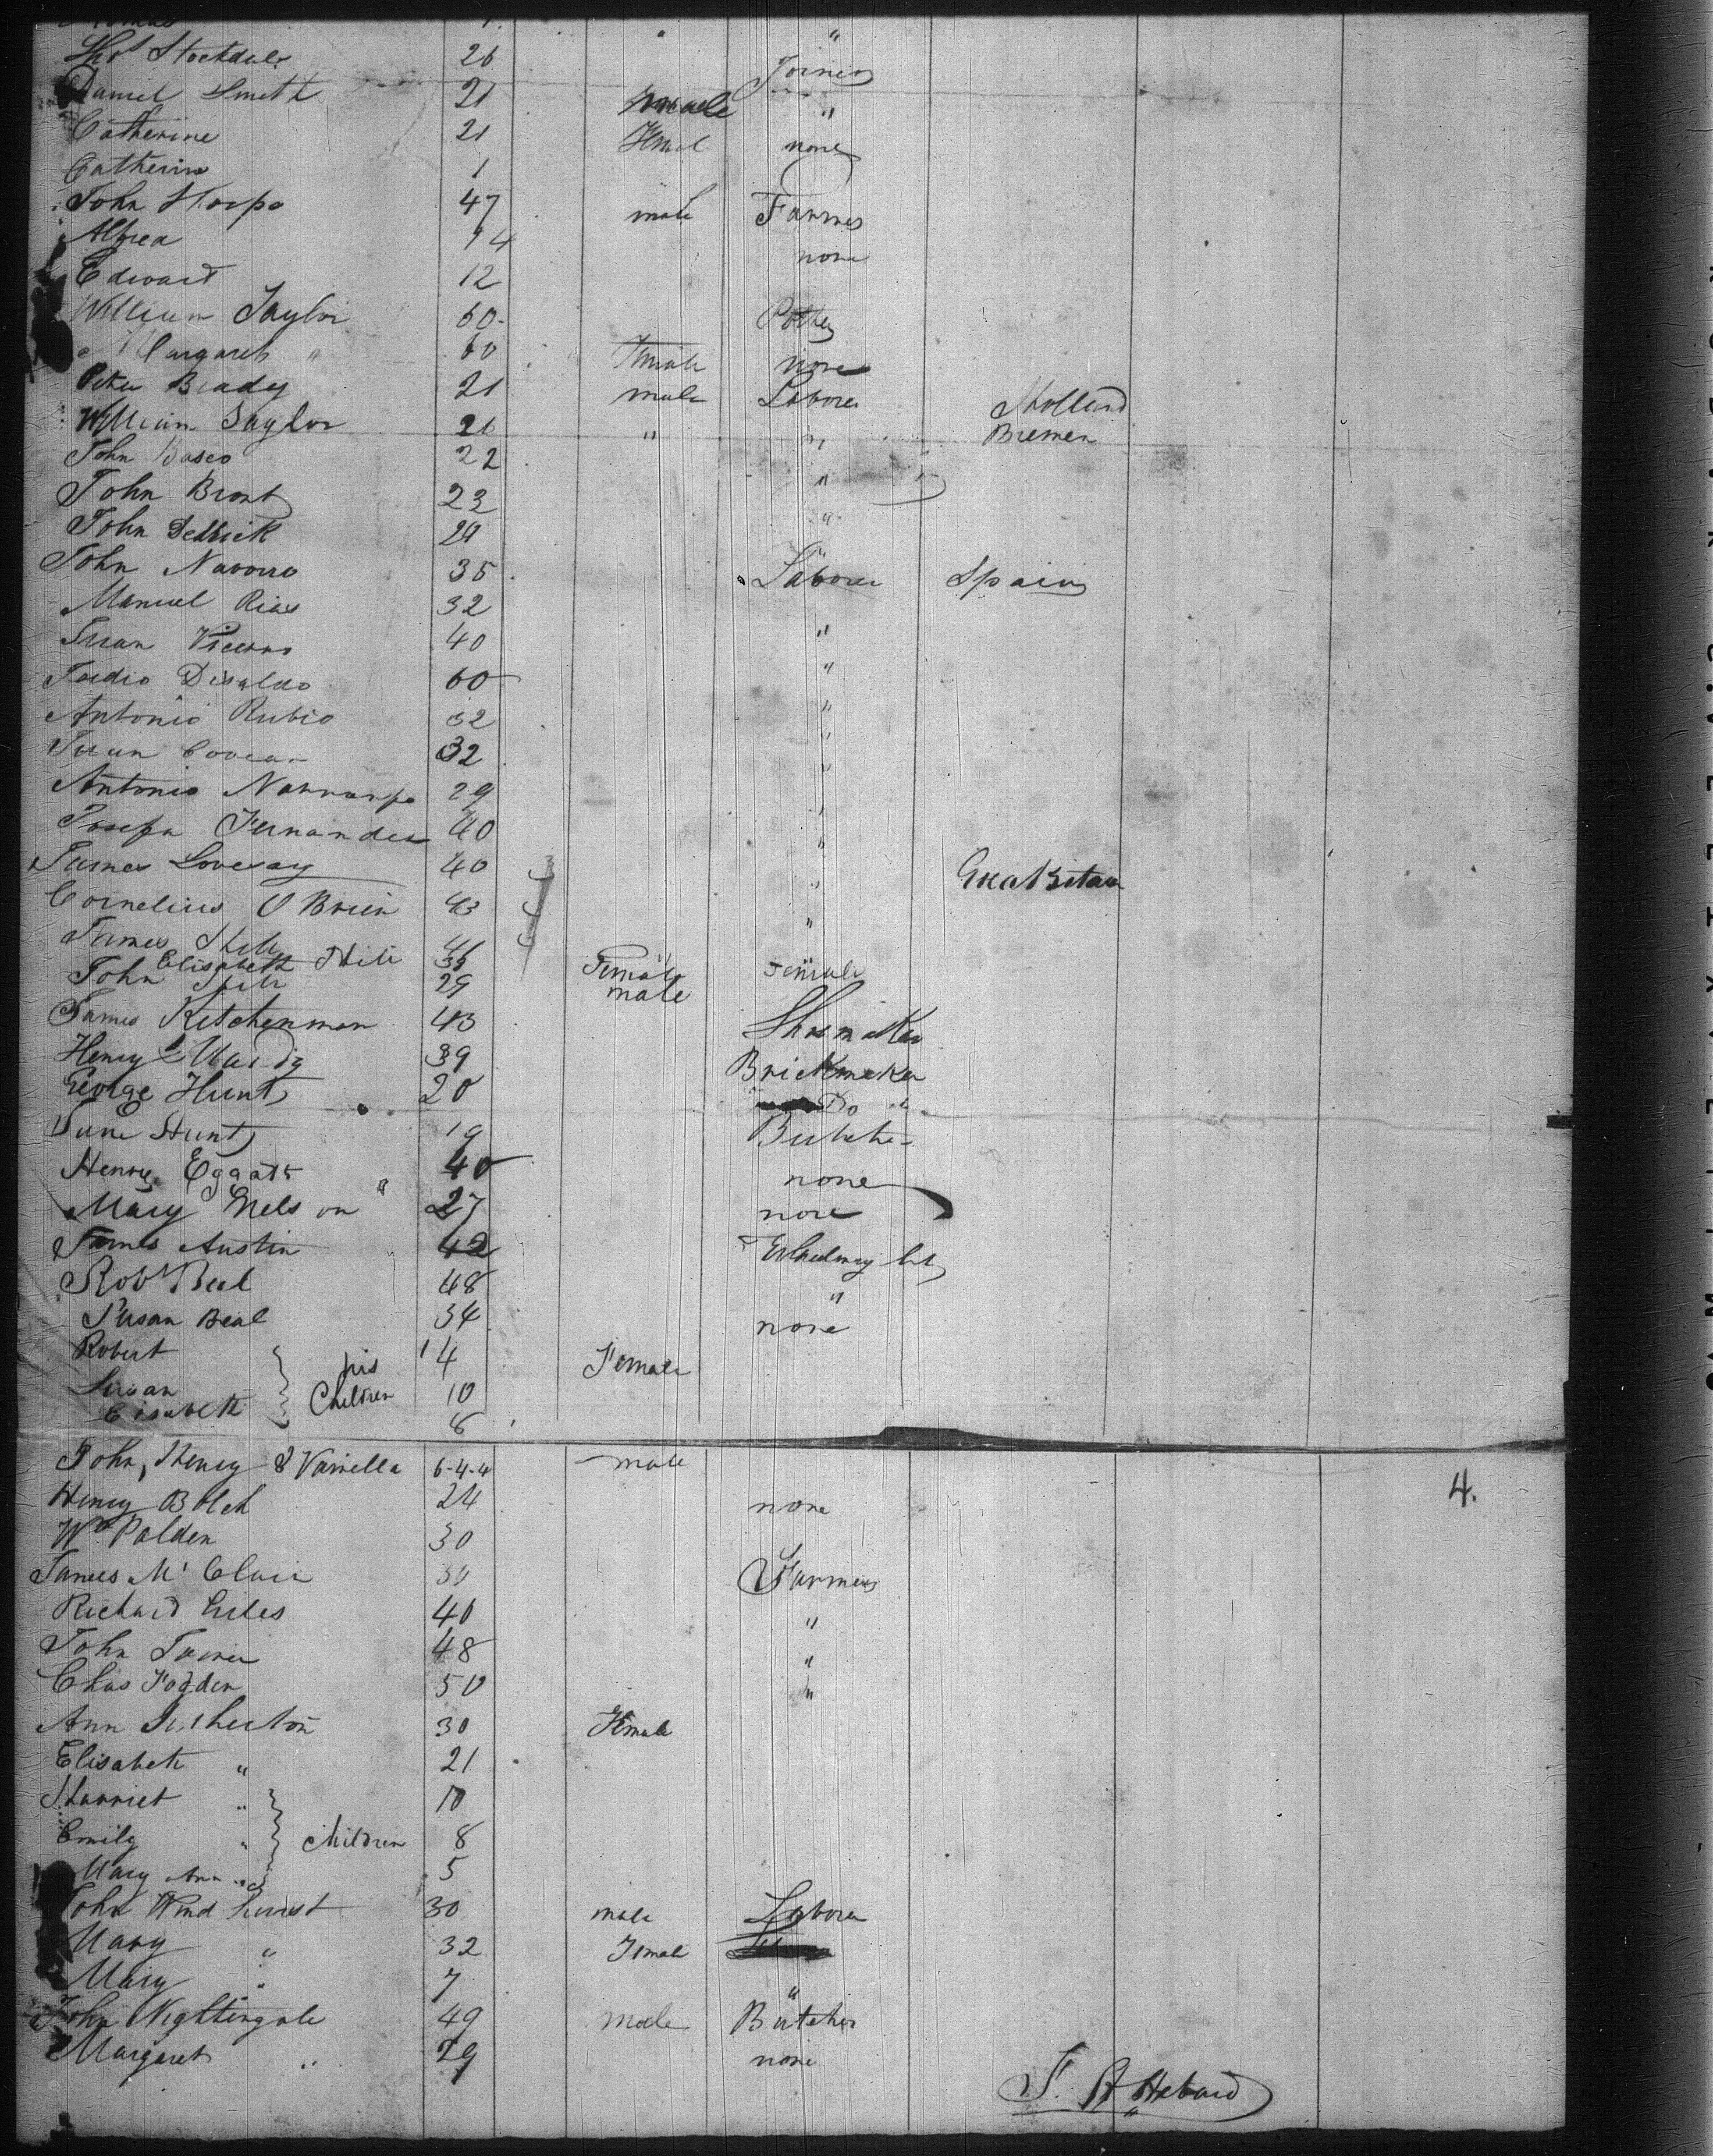 Thos Stockdale 26 "
Daniel Smith 21 male Joiner
Catherine 21 Femal "
Catherine 1 none
John Thorpe 47 male Farmer
Alfred 14 none
Edward 12
William Taylor 60 Potter
Margaret " 60 Female none
Peter Brady 21 male Laborer Holland
William Taylor 21 " " Bremen
John Basco 22 "
John Bront 23 "
John Dedrick 24 "
John Navorro 35 Laborer Spain
Manuel Rias 32 "
Juan 40 "
Disaldo 60 "
Antonio Rubio 32 "
Juan 32 "
Antonio 29 "
Josefa Fernandes 40 "
James Lovesay 40 " Great Britain
Cornelius O Brien 43 "
James 46
Elisabeth Hile 35 Female Female
John 29 male
James Kitchenman 43 Shoemaker
Henry 39 Brickmaker
George Hunt 20 Do "
Jane Hunt 19 Butcher
Henry 40 none
Mary Nelson " 27 none
James Austin 42
Robt Beal 48 "
Susan Beal 34 none
Robert 14 Female
Susan his Children 10
Elisabeth 8
John, Henry & 6-4-4 male
4.
Henry 24 none
Wm Palden 30
James Mc Clair 30 Farmer
Richard Giles 40 "
John Turner 48 "
Chas Fogden 50 "
Ann 30 Female
Elisabeth " 21
Harriet " 10
Emily " Children 8
Mary Ann " 5
John 30 male Laborer
Mary " 32 Female
Mary " 7 "
John Nightingale 49 male Butcher
Margaret " 29 none